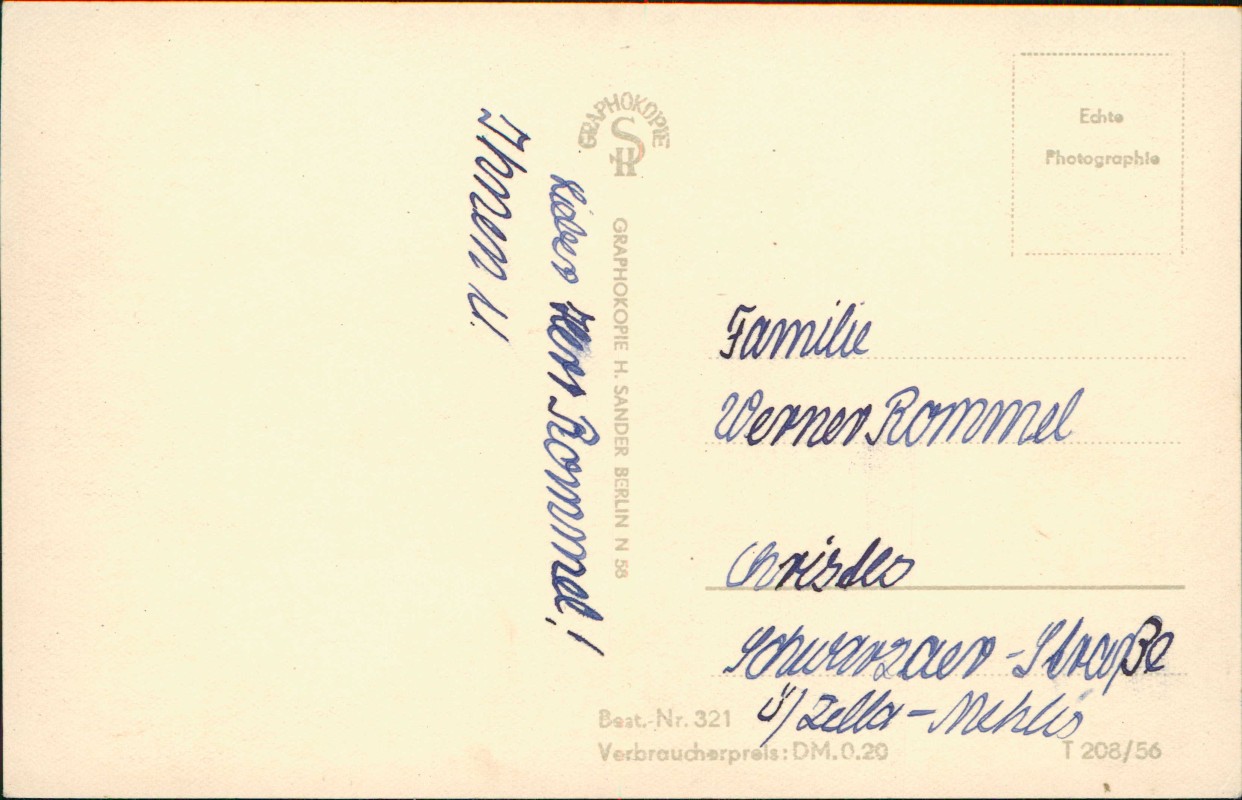 Lieber Herr Rommel!
Ihnen u.
GRAPHOKOPIE
HS
GRAPHOKOPIE H. SANDER BERLIN N 58
Echte
Photographie
Familie
Werner Rommel
Christes
Schwarzaer-Straße
ü/ Zella-Mehlis
Best.-Nr. 321
Verbraucherpreis: DM.0.20
T 208/56